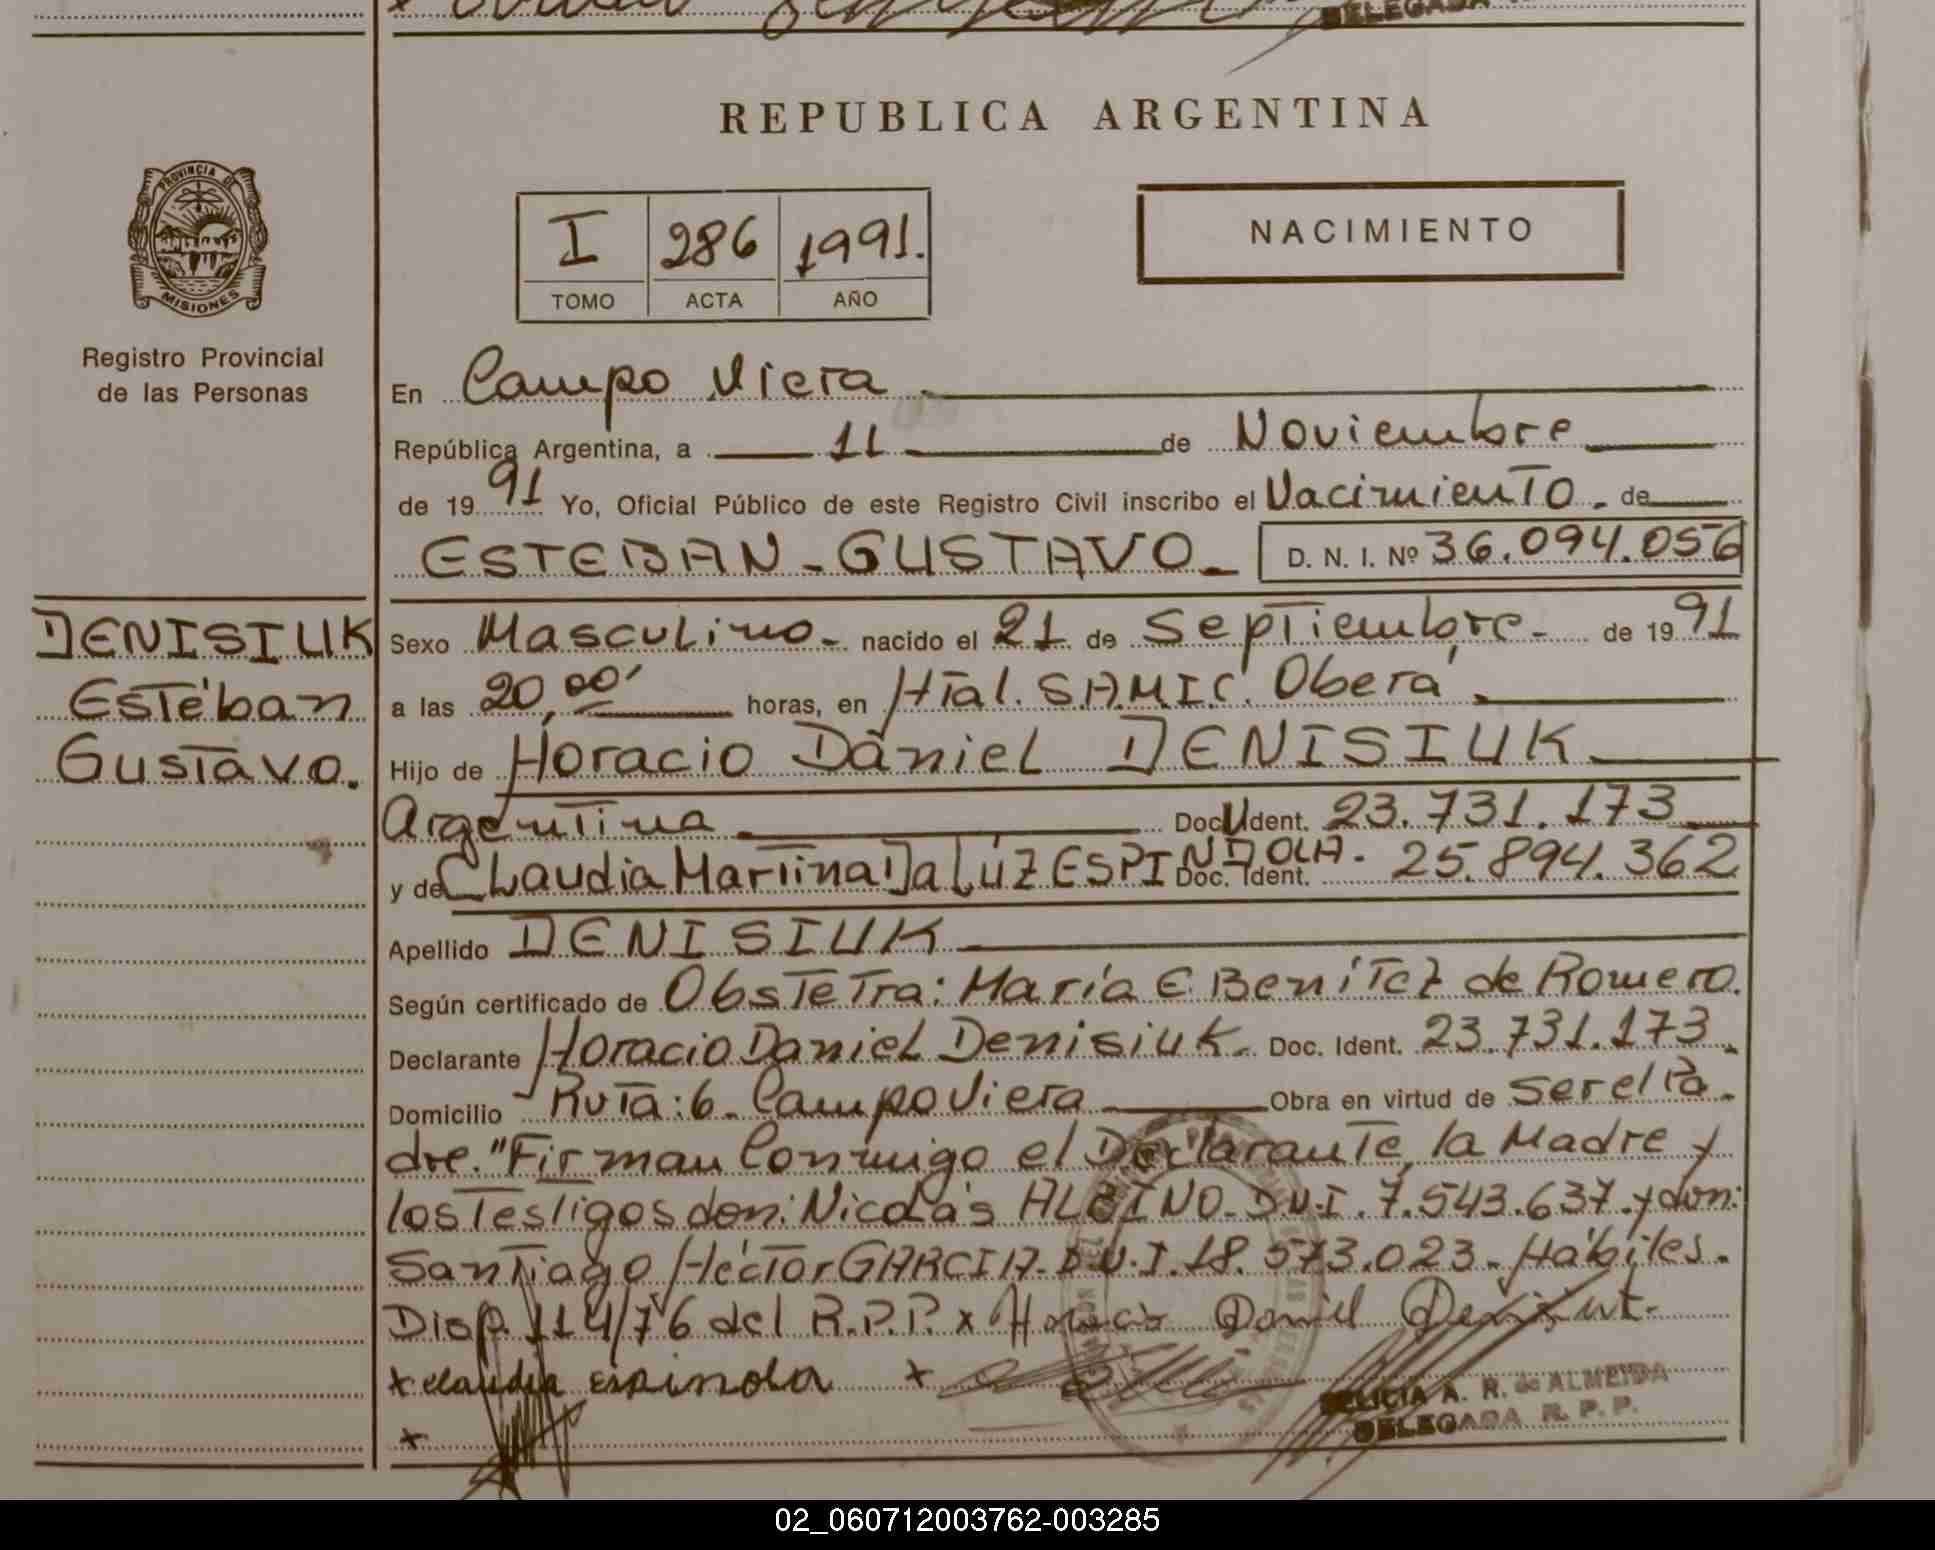 DELEGADA
REPUBLICA ARGENTINA
PROVINCIA DE
MISIONES
Registro Provincial
de las Personas
I 286 1991.
TOMO ACTA AÑO
NACIMIENTO
En Campo Viera
República Argentina, a 11 de Noviembre
de 1991 Yo, Oficial Público de este Registro Civil inscribo el Nacimiento. de
ESTEBAN - GUSTAVO D. N. I. Nº 36.094.056
DENISIUK
Estéban
Gustavo.
Sexo Masculino. nacido el 21 de Septiembre. de 1991
a las 20,00' horas, en Htal. S.A.M.I.C. Oberá.
Hijo de Horacio Daniel DENISIUK
Argentina Doc. Ident. 23.731.173
y de Claudia Martina Da Lúz ESPINDOLA. Doc. Ident. 25.894.362
Apellido DENISIUK
Según certificado de Obstetra: María E. Benítez de Romero.
Declarante Horacio Daniel Denisiuk. Doc. Ident. 23.731.173.
Domicilio Ruta: 6. Campo Viera Obra en virtud de ser el Pa
dre. "Firman Conmigo el Declarante, la Madre y
los Testigos don: Nicolás ALBINO. D.N.I. 7.543.637. y don:
Santiago Héctor GARCIA. D.N.I. 18.573.023. Hábiles.
Disp. 114/76 del R.P.P. x Horacio Daniel Denisiuk
x claudia espindola x
x
FELICIA A. R. de ALMEIDA
DELEGADA R. P. P.
02_060712003762-003285